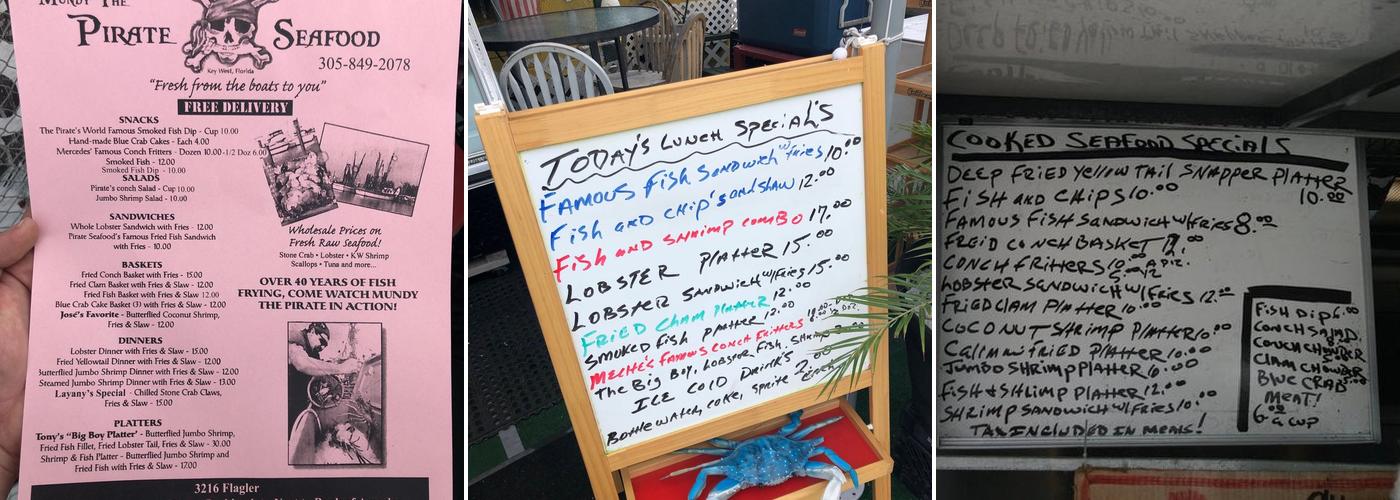 PIRATE SEAFOOD
Key West, Florida
305-849-2078
"Fresh from the boats to you"
FREE DELIVERY
SNACKS
The Pirate's World Famous Smoked Fish Dip - Cup 10.00
Hand-made Blue Crab Cakes - Each 4.00
Mercedes' Famous Conch Fritters - Dozen 10.00 - 1/2 Doz 6.00
Smoked Fish - 12.00
Smoked Fish Dip - 10.00
SALADS
Pirate's conch Salad - Cup 10.00
Jumbo Shrimp Salad - 10.00
SANDWICHES
Whole Lobster Sandwich with Fries - 12.00
Pirate Seafood's Famous Fried Fish Sandwich
with Fries - 10.00
BASKETS
Fried Conch Basket with Fries - 15.00
Fried Clam Basket with Fries - 12.00
Fried Fish Basket with Fries & Slaw 12.00
Blue Crab Cake Basket (3) with Fries & Slaw - 12.00
José's Favorite - Butterflied Coconut Shrimp,
Fries & Slaw - 12.00
DINNERS
Lobster Dinner with Fries & Slaw - 15.00
Fried Yellowtail Dinner with Fries & Slaw - 12.00
Butterflied Jumbo Shrimp Dinner with Fries & Slaw - 12.00
Steamed Jumbo Shrimp Dinner with Fries & Slaw - 13.00
Layany's Special - Chilled Stone Crab Claws,
Fries & Slaw - 15.00
PLATTERS
Tony's "Big Boy Platter' - Butterflied Jumbo Shrimp,
Fried Fish Fillet, Fried Lobster Tail, Fries & Slaw - 30.00
Shrimp & Fish Platter - Butterflied Jumbo Shrimp and
Fried Fish with Fries & Slaw - 17.00
Wholesale Prices on
Fresh Raw Seafood!
Stone Crab • Lobster • KW Shrimp
Scallops • Tuna and more...
OVER 40 YEARS OF FISH
FRYING, COME WATCH MUNDY
THE PIRATE IN ACTION!
3216 Flagler
TODAY'S LUNCH SPECIAL'S
FAMOUS FISH SANDWICH W/FRIES 10.00
FISH AND CHIP'S AND SLAW 12.00
FISH AND SHRIMP COMBO 17.00
LOBSTER PLATTER 15.00
LOBSTER SANDWICH W/FRIES 15.00
FRIED CLAM PLATTER 12.00
SMOKED FISH PLATTER 12.00
MECHE'S FAMOUS CONCH FRITTERS
THE BIG BOY, LOBSTER, FISH, SHRIMP
ICE COLD DRINK'S 2.00 EACH
BOTTLE WATER, COKE, SPRITE
COOKED SEAFOOD SPECIALS
DEEP FRIED YELLOW TAIL SNAPPER PLATTER
10.00
FISH AND CHIPS 10.00
FAMOUS FISH SANDWICH W/FRIES 8.00
FREID CONCH BASKET
CONCH FRITTERS 10.00 A DZ.
LOBSTER SANDWICH W/FRIES 12.00
FRIED CLAM PLATTER 10.00
COCONUT SHRIMP PLATTER 10.00
CALIMARI FRIED PLATTER 10.00
JUMBO SHRIMP PLATTER 10.00
FISH & SHRIMP PLATTER 12.00
SHRIMP SANDWICH W/FRIES 10.00
TAX INCLUDED IN MEALS!
FISH DIP 6.00
CONCH SALAD
CONCH CHOWDER
CLAM CHOWDER
BLUE CRAB
MEAT!
6.00 a CUP